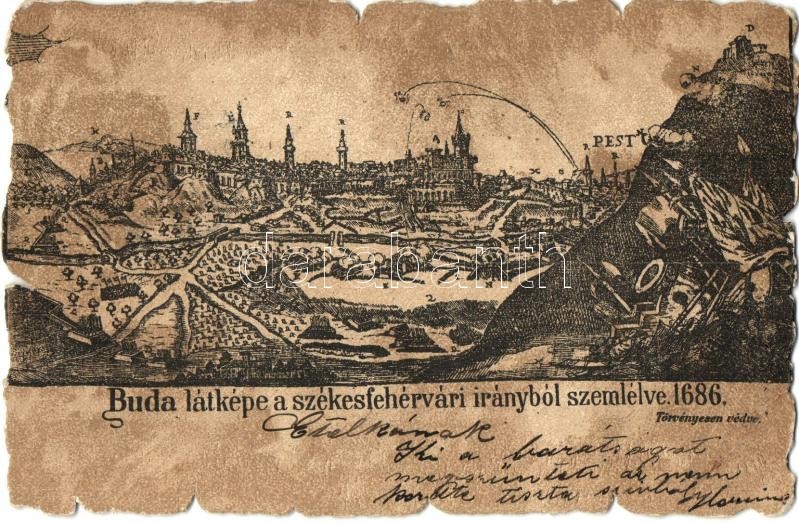 PEST
darabanth
Buda látképe a székesfehérvári irányból szemlélve. 1686.
Törvényesen védve.
Etelkának
Ki a barátságot
megszünteti az nem
tiszta